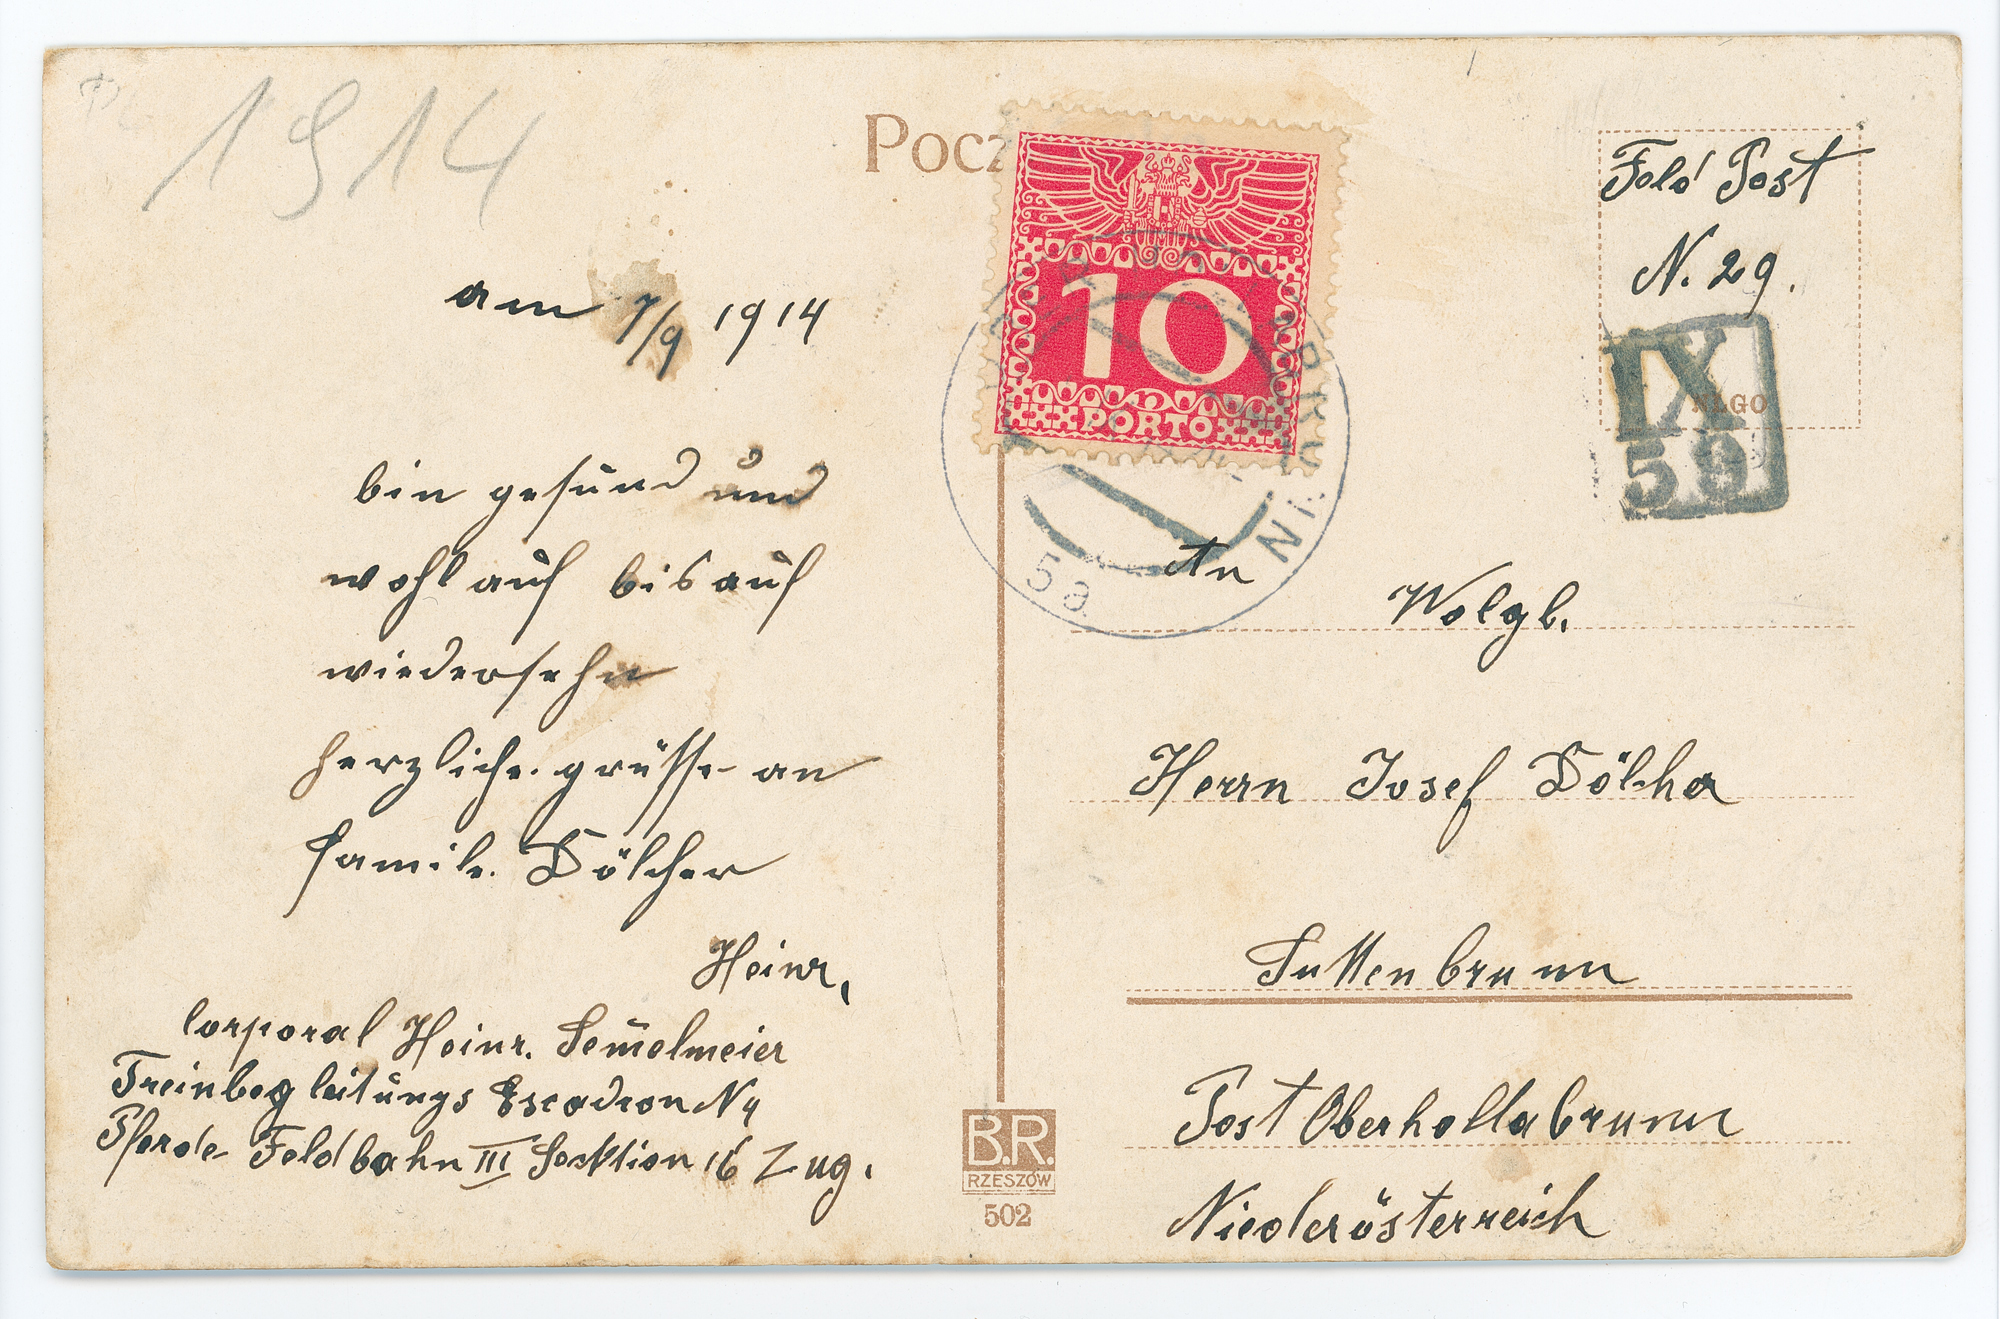 1914
Pocz
10
PORTO
Feld Post
N. 29.
IX
59
ALGO
5a
am 7/9 1914
bin gesund und
wohl auf bis auf
wiedersehn
herzliche grüsse an
Familie Dölcher
Heinr.
An
Wolgb.
Herrn Josef Dölcher
Suttenbrunn
Post Oberhollabrunn
Niederösterreich
Corporal Heinr.
Treinbegleitungs Escadron N 4
Pferde Feldbahn III Secktion 16 Zug.
B.R.
RZESZÓW
502